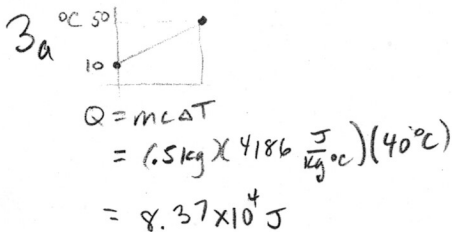 3a °C 50
10
Q = mcΔT
= (.5kg)(4186 J/kg°C)(40°C)
= 8.37×10⁴ J